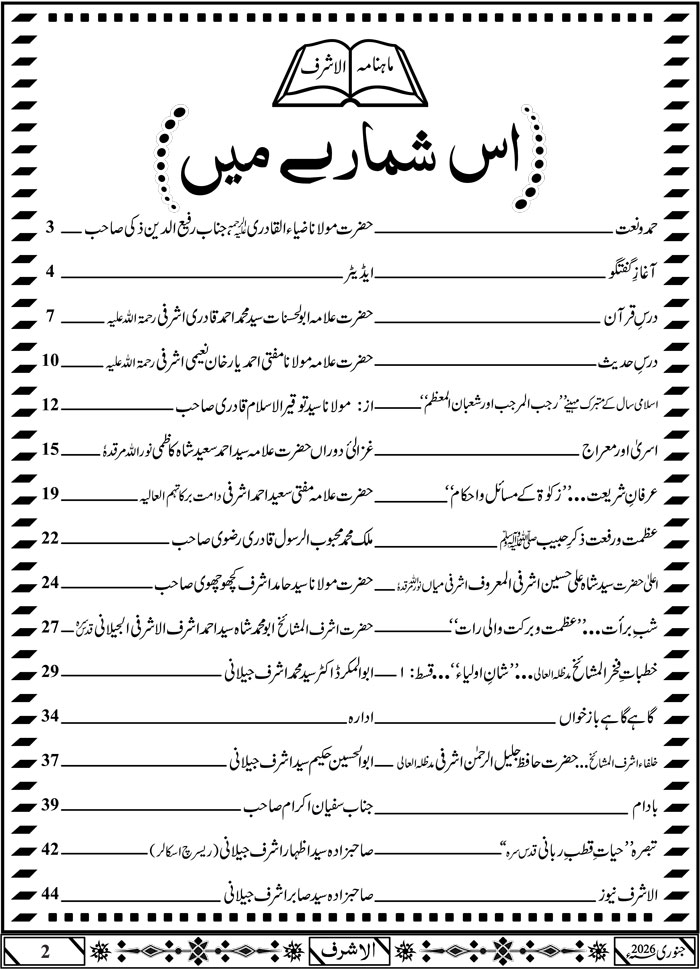 ماہنامہ الاشرف
اس شمارے میں
حمد و نعت حضرت مولانا ضیاء القادری علیہ الرحمہ جناب رفیع الدین ذکی صاحب 3
آغازِ گفتگو ایڈیٹر 4
درسِ قرآن حضرت علامہ ابوالحسنات سید محمد احمد قادری اشرفی رحمۃ اللہ علیہ 7
درسِ حدیث حضرت علامہ مولانا مفتی احمد یار خان نعیمی اشرفی رحمۃ اللہ علیہ 10
اسلامی سال کے متبرک مہینے ’’رجب المرجب اور شعبان المعظم‘‘ از: مولانا سید توقیر الاسلام قادری صاحب 12
اسریٰ اور معراج غزالیٔ دوراں حضرت علامہ سید احمد سعید شاہ کاظمی نور اللہ مرقدہٗ 15
عرفانِ شریعت...’’زکوٰۃ کے مسائل و احکام‘‘ حضرت علامہ مفتی سعید احمد اشرفی دامت برکاتہم العالیہ 19
عظمت و رفعت ذکرِ حبیب ﷺ ملک محمد محبوب الرسول قادری رضوی صاحب 22
اعلیٰ حضرت سید شاہ علی حسین اشرفی المعروف اشرفی میاں نور اللہ مرقدہٗ حضرت مولانا سید حامد اشرف کچھوچھوی صاحب 24
شبِ برأت...’’عظمت و برکت والی رات‘‘ حضرت اشرف المشائخ ابو محمد شاہ سید احمد اشرف الاشرفی الجیلانی قدس سرہٗ 27
خطباتِ فخر المشائخ مدظلہ العالی...’’شانِ اولیاء‘‘...قسط: ۱ ابوالمکرم ڈاکٹر سید محمد اشرف جیلانی 29
گاہے گاہے باز خواں ادارہ 34
خلفاء اشرف المشائخ...حضرت حافظ جلیل الرحمٰن اشرفی مدظلہ العالی ابوالحسین حکیم سید اشرف جیلانی 37
بادام جناب سفیان اکرام صاحب 39
تبصرہ ’’حیاتِ قطبِ ربانی قدس سرہ‘‘ صاحبزادہ سید اظہار اشرف جیلانی (ریسرچ اسکالر) 42
الاشرف نیوز صاحبزادہ سید صابر اشرف جیلانی 44
جنوری 2026ء الاشرف 2